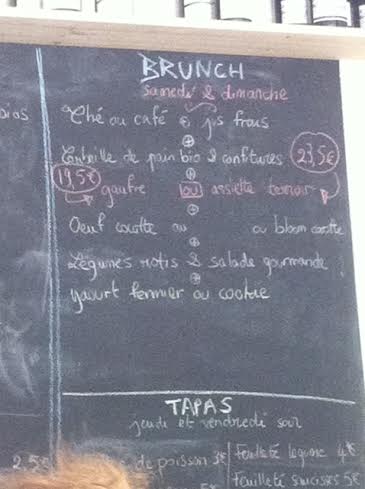 BRUNCH
samedi & dimanche
Thé ou café ⊕ jus frais
⊕
Corbeille de pain bio & confitures 23,5€
⊕
19,5€ gaufre ou assiette terroir
⊕
Oeuf cocotte au ou bloom carotte
⊕
Légumes rotis & salade gourmande
⊕
yaourt fermier ou cookie
TAPAS
jeudi et vendredi soir
de poisson 3€
feuilleté legume 4€
feuilleté saucisses 5€
2.5€